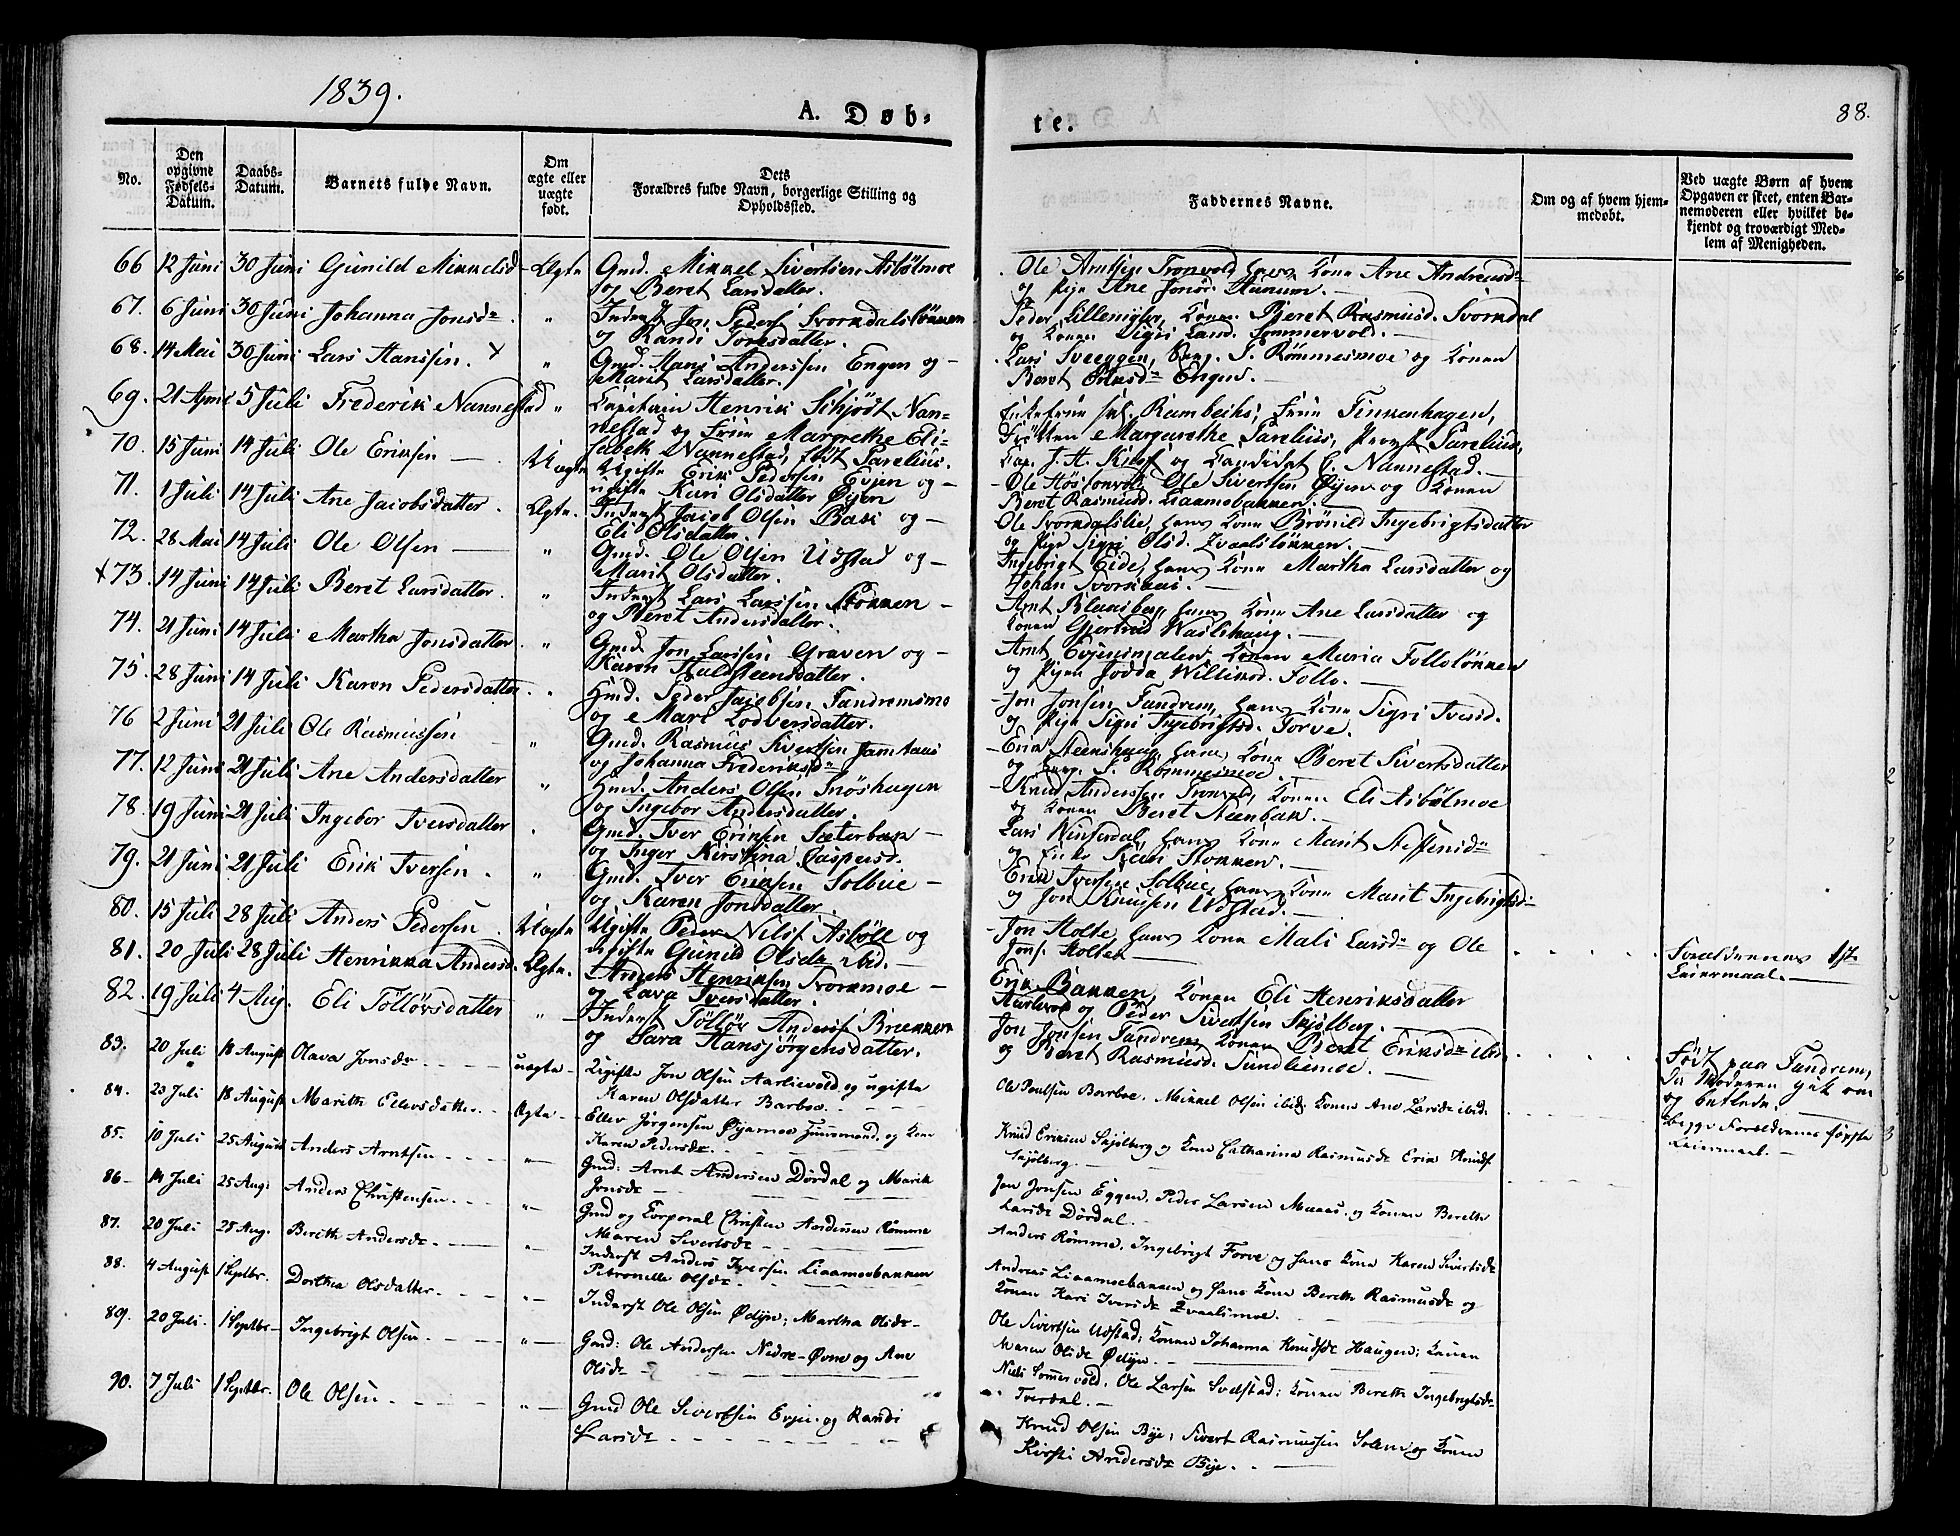 1839.
88.
A. Døb-
te.
No.
Den opgivne Fødsels-Datum.
Daabs-Datum.
Barnets fulde Navn.
Om ægte eller uægte født.
Dets Forældres fulde Navn, borgerlige Stilling og Opholdssted.
Faddernes Navne.
Om og af hvem hjem-
medøbt.
Ved uægte Børn af hvem
Opgaven er skeet, enten Bar-
nemoderen eller hvilket be-
kjendt og troværdigt Med-
lem af Menigheden.
66 12 Juni 30 Juni Gunild Mikkelsd Ægte Gmd. Mikkel Sivertsen Asbølmoe
og Beret Larsdatter.
Ole Arntsen Tronvold, hans Kone Ane Andreasdr
og Pige Ane
67. 6 Juni 30 Juni Johanna Jonsdr. " Inderst Jon Peders Svorkdalsløkken
og Randi Toresdatter.
Peder Lillemyhr, Konen Beret Rasmusd. Svorkdal
og Konen Sigri Sommervold.
68. 14 Mai 30 Juni Lars Hanssen. " Gmd. Hans Anderssen Engen og
Marit Larsdatter.
Lars Sveeggen, Ung. S. Rømmesmoe og Konen
Beret Engen.
69. 21 April 5 Juli Frederik Nannestad " Capitain Henrik Schjødt Nan-
nestad og Frue Margrethe Eli-
sabeth Nannestad, født Parelius.
Enkefrue sal. Rambechs, Frue Finkenhagen,
Frøken Margarethe Parelius, Provst Parelius,
Cap. J. H. og Candidat C. Nannestad.
70. 15 Juni 14 Juli Ole Eriksen Uægte Ugifte Erik Pedersen Evjen og
ugifte Kari Olsdatter Øyen
Ole Ole Sivertsen Øyen og Konen
Beret Rasmusd. Liaamoebakken.
71. 1 Juli 14 Juli Ane Jacobsdatter. Ægte. Inderst Jacob Olsen Bak og
Eli Olsdatter.
Ole Svorkdalslie, hans Kone Brønild Ingebrigtsdatter
og Pige Sigri Olsd. Qvaalsløkken.
72. 28 Mai 14 Juli Ole Olsen " Gmd. Ole Olsen Udstad og
Marit Olsdatter.
Ingebrigt Eide, hans Kone Martha Larsdatter og
Johan
73. 14 Juni 14 Juli Beret Larsdatter. " Inderst Lars Larssen Stokken
og Beret Andersdatter.
Arnt Blaasberg, hans Kone Ane Larsdatter og
Konen Gjertrud
74. 21 Juni 14 Juli Martha Jonsdatter. " Gmd. Jon Larssen Graven og
Karen Haldsteensdatter.
Arnt Evjensmalen, Konen Maria Folloløkken
og Pigen Jodda Willemsd. Follo.
75. 28 Juni 14 Juli Karen Pedersdatter. " Hmd. Peder Jacobsen Fandremsmo
og Mari Lodversdatter.
Jon Jonsen Fandrem, hans Kone Sigri Iversd.
og Pige Sigri Ingebrigtsd. Forve.
76 2 Juni 21 Juli Ole Rasmussen " Gmd. Rasmus Sivertsen Jamthaug
og Johanna Frederiksdr
Erik Steenshaug, hans Kone Beret Sivertsdatter
og Ung. S. Rømmesmoe.
77. 12 Juni 21 Juli Ane Andersdatter " Hmd. Anders Olsen Snøshagen
og Ingebor Andersdatter.
Knud Anderssen Tronvold, Konen Eli Asbølmoe
og Konen Beret Steenbak.
78. 19 Juni 21 Juli Ingebor Iversdatter " Gmd. Iver Eriksen Sæterbak
og Inger Kirstina Caspersd.
Lars Vinterdal, hans Kone Marit Steffensdr
og Enke Stokken.
79. 21 Juni 21 Juli Erik Iversen. " Gmd. Iver Eriksen Solbue
og Karen Jonsdatter.
Erik Iversen Solbue, hans Kone Marit Ingebrigtsdr
og Jon Knudsen Udstad.
80. 15 Juli 28 Juli Anders Pedersen. Uægte Ugifte Peder Nilss Asbølle og
ugifte Gunild Olsdr ibid.
Jon Holte, hans Kone Mali Larsdr og Ole
Jons. Holte.
Forældrenes 1ste
Leiermaal.
81. 20 Juli 28 Juli Henrikka Andersd. Ægte. Anders Henriksen Svorkmoe
og Lava Iversdatter.
Erik Bakken, Konen Eli Henriksdatter
Aarlivold og Peder Sivertsen Skjølberg.
82. 19 Juli 4 Aug. Eli Tølløvsdatter " Inderst Tølløv Anderss. Brækken
og Sara Hansjørgensdatter.
Jon Jonsen Fandrem, Konen Beret Eriksdr ibid.
og Beret Rasmusd. Sundliemoe.
Født paa Fandrem,
da Moderen gik om
og betlede.
83. 20 Juli 18 August Olava Jonsdr. uægte Ugifte Jon Olsen Aarlivold og ugifte
Karen Olsdatter Barboe.
Ole Poulsen Barboe, Mikkel Olsen ibid. Konen Ane Larsdr ibid.
Begge Forældrenes første
Leiermaal.
84. 23 Juli 18 August Marith Ellevsdatter. Ægte Ellev Jørgensen Øyamoe Huusmand, og Kone
Karen Pedersdr.
Knud Eriksen Skjølberg og Kone Catharina Rasmusdr Erik Knuds.
Skjølberg.
85. 10 Juli 25 August Anders Arntsen " Gmd: Arnt Andersen Dørdal og Marit
Jonsdr
Jon Jonsen Eggen, Peder Larsen Muaas, og Konen Bereth
Larsdr Dørdal.
86 14 Juli 25 Aug. Anders Christensen " Gmd og Corporal Christen Andersen Rømme
Maren Sivertsdr
Anders Rømme, Ingebrigt Forve og hans Kone Karen Sivertsdr
87. 20 Juli 25 Aug. Bereth Andersdr. " Inderst Anders Iversen Liaamoebakken
Petronelle Olsdr.
Andreas Liaamoebakken og hans Kone Bereth Rasmusdr og
Konen Kari Iversdr Qvaalsmoe.
88. 4 August 1 Septbr. Dorthea Olsdatter. " Inderst Ole Olsen Ødeyn; Martha Olsdr
Ole Sivertsen Udstad; Konen Johanna Knudsdr Haugen; Konen
Maren Olsdr Ødeyn.
89. 20 Juli. 1 Septbr Ingebrigt Olsen. " Gmd: Ole Andersen Nedre-Øvne og Ane
Olsdr
Niels Somervold, Ole Larsen Svelstad; Konen Bereth Ingebrigtsdr
Tverdal.
90. 7 Juli 1 Septbr. Ole Olsen " Gmd Ole Sivertsen Evjen og Randi
Larsdr
Knud Olsen Bye; Sivert Rasmussen Solem og Konen
Kirsti Andersdr Bye.